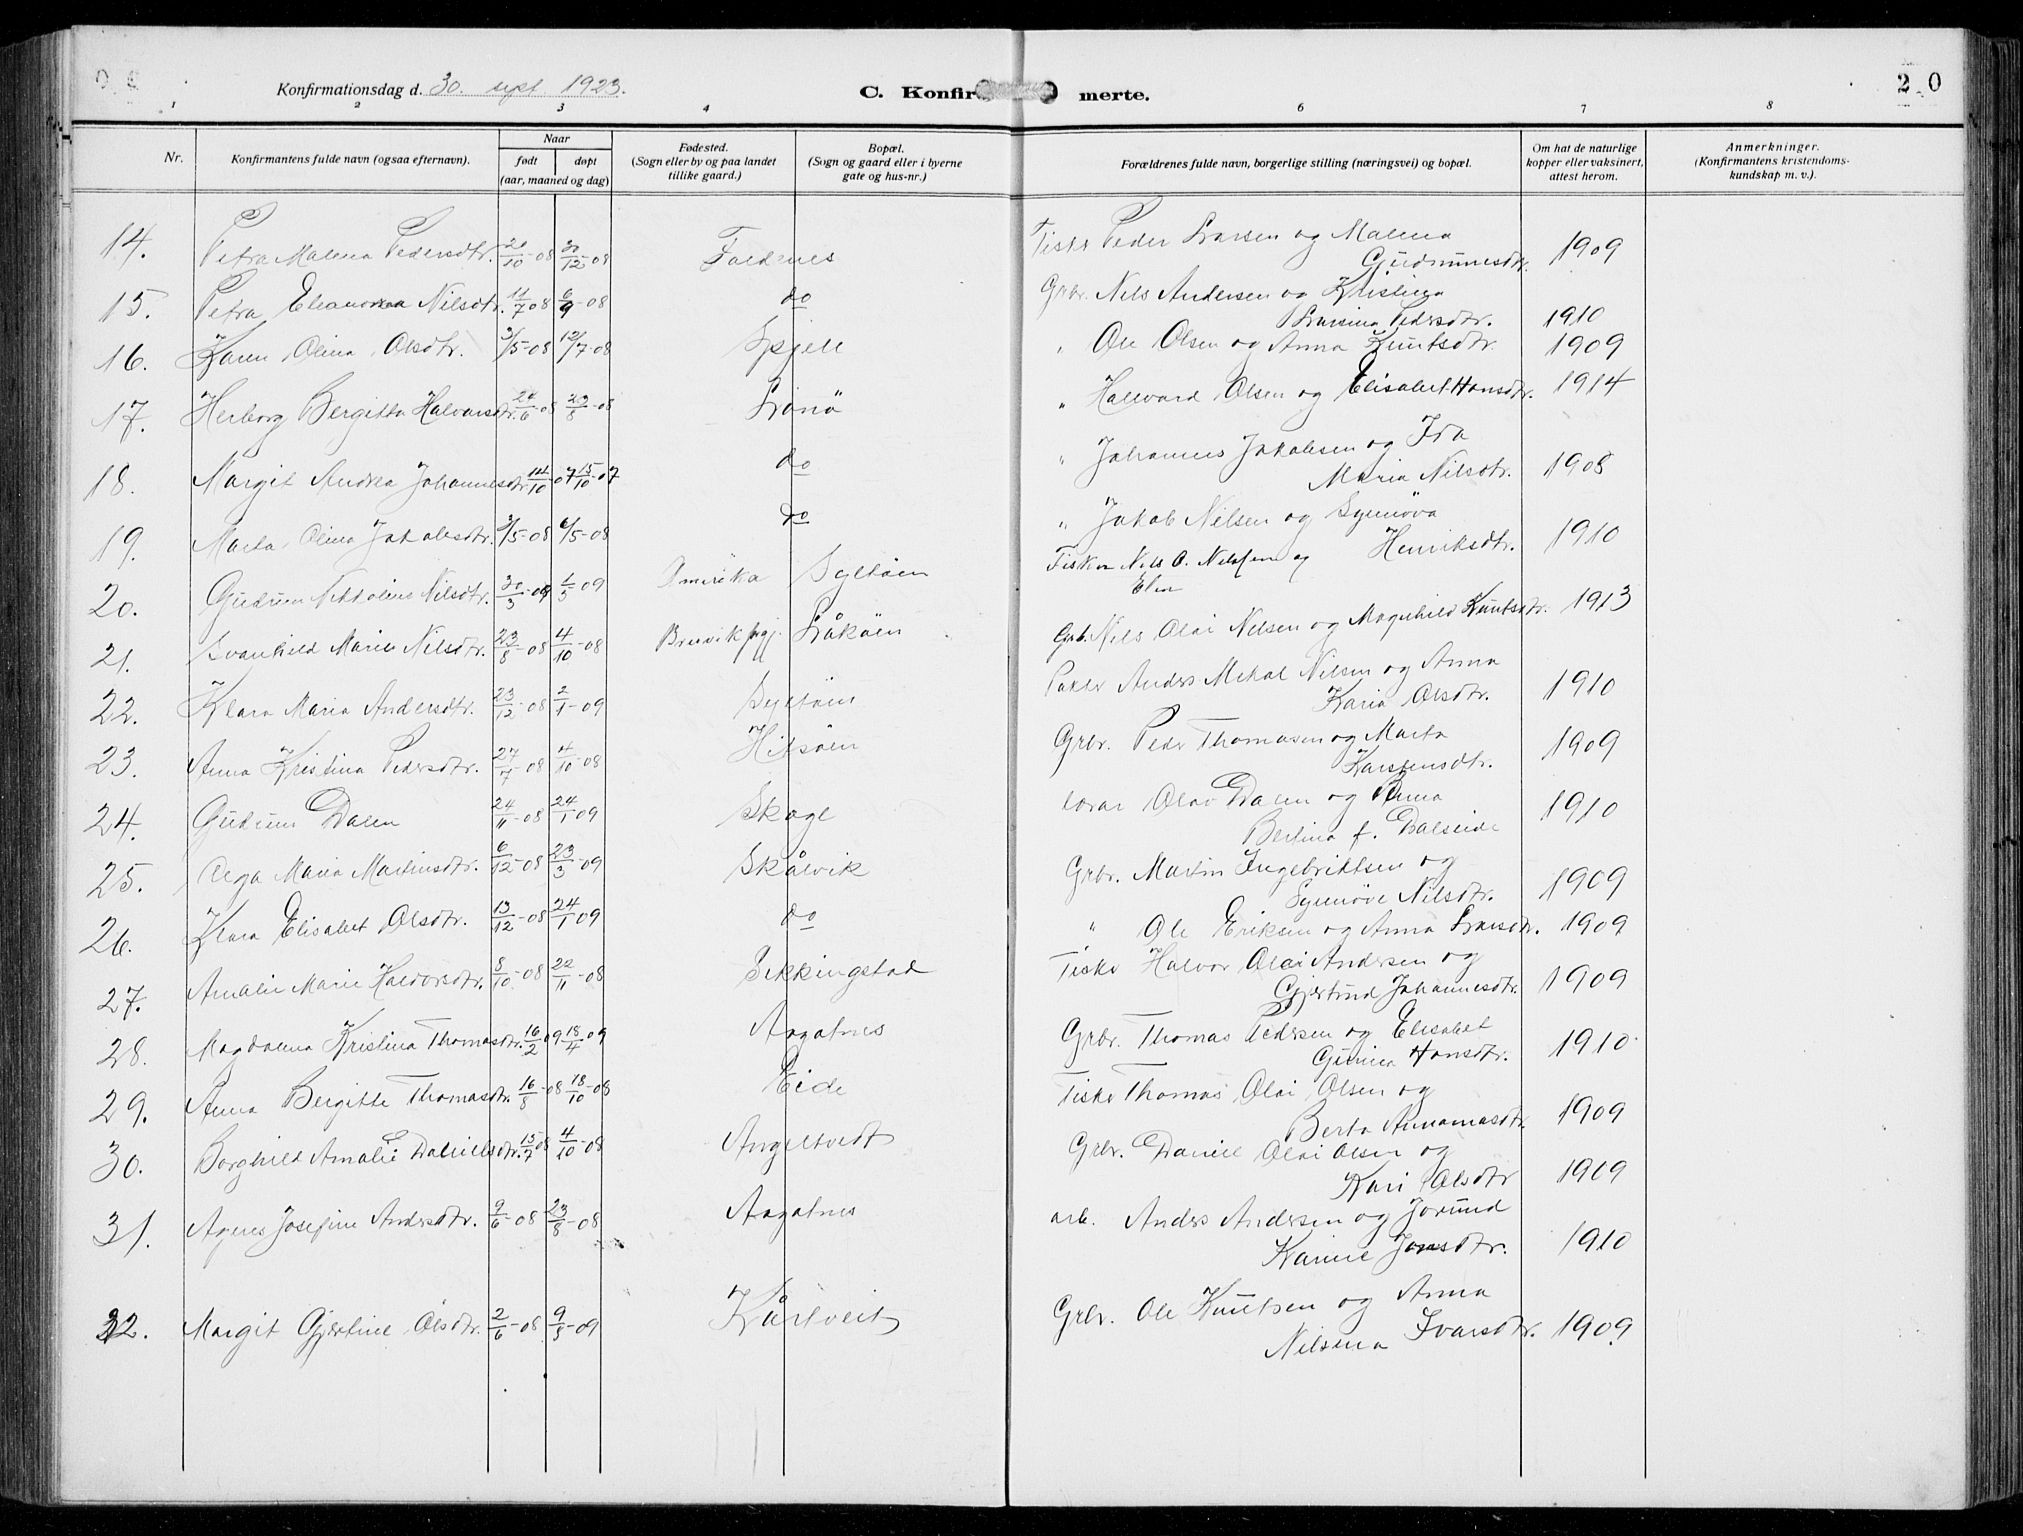 Konfirmationsdag d. 30. sept 1923.
C. Konfir merte.
20
1 2 3 4 6 7 8
Nr.
Konfirmantens fulde navn (ogsaa efternavn).
Naar
født døpt
(aar, maaned og dag)
Fødested.
(Sogn eller by og paa landet
tillike gaard.)
Bopæl.
(Sogn og gaard eller i byerne
gate og hus-nr.)
Forældrenes fulde navn, borgerlige stilling (næringsvei) og bopæl.
Om hat de naturlige
kopper eller vaksinert,
attest herom.
Anmerkninger.
(Konfirmantens kristendoms-
kundskap m. v.).
14. Petra Malena Pedersdtr. 20/10-08 30/12-08 Foldnes Fisker Peder Larsen og Malena
Gudmunsdtr. 1909
15. Petra Eleanora Nilsdtr. 11/7 08 6/9-08 do Grbr. Nils Andersen og Kristina
Larsina Pedersdtr. 1910
16. Karen Olina Olsdtr. 3/5-08 12/7-08 Spjell " Ole Olsen og Anna Knutsdtr. 1909
17. Herborg Bergitta Halvarsdtr. 24/6-08 23/8-08 Lønö " Hallvard Olsen og Elisabet Hansdtr. 1914
18. Margit Andrea Johannesdtr. 14/10 07 15/10-07 do " Johannes Jakobsen og Ida
Maria Nilsdtr. 1908
19. Marta Olina Jakobsdtr. 3/5-08 6/5-08 do " Jakob Nilsen og Synnöva
Henriksdtr. 1910
20. Gudrun Nikoline Nilsdtr. 30/3-09 1/5 09 Amerika Syltöen Fisker Nils O. Nilssen og
Elen
21. Svanhild Marie Nilsdtr. 23/8-08 4/10-08 Brevik pgj. Låköen Grb. Nils Olai Nilsen og Magnhild Knutsdtr. 1913
22. Klara Maria Andersdtr. 23/12-08 2/1-09 Syltöen Anders Mikal Nilsen og Anna
Karia Olsdtr. 1910
23. Anna Kristina Pedersdtr. 27/7-08 4/10-08 Hitsöen Grbr. Peder Thomasen og Marta
Karstensdtr. 1909
24. Gudrun Dalen 24/11-08 24/1 09 Skoge lærar Olav Dalen og Anna
Bertina f. Dalseide 1910
25. Olga Maria Martinsdtr. 6/12-08 23/3-09 Skålvik Grbr. Martin Ingebriktsen og
Synnöve Nilsdtr. 1909
26. Klara Elisabet Olsdtr. 13/12-08 24/1 09 do " Ole Eriksen og Anna Larsdtr. 1909
27. Amalie Marie Haldorsdtr. 8/10-08 22/11-08 Sekkingstad Fisker Halvor Olai Andersen og
Gjertrud Johannesdtr. 1909
28. Magdalena Kristina Thomasdtr. 16/2 09 18/4-09 Aagotnes Grbr. Thomas Pedersen og Elisabet
Gurina Hansdtr. 1910
29. Anna Bergitte Thomasdtr. 16/8-08 18/10-08 Eide Fisker Thomas Olai Olsen og
Berta Annamasdtr. 1909
30. Borghild Amalie Danielsdtr. 15/7 08 4/10-08 Angeltvedt Grbr. Daniel Olai Olsen og
Kari Olsdtr 1909
31. Agnes Josefine Andersdtr. 9/6-08 23/8-08 Aagotnes arb. Anders Andersen og Jorund
Karine Jonsdtr. 1910
32. Margit Gjertine Olsdtr. 2/6-08 9/5-09 Kårtveit Grbr. Ole Knutsen og Anna
Nilsena Ivarsdtr. 1909